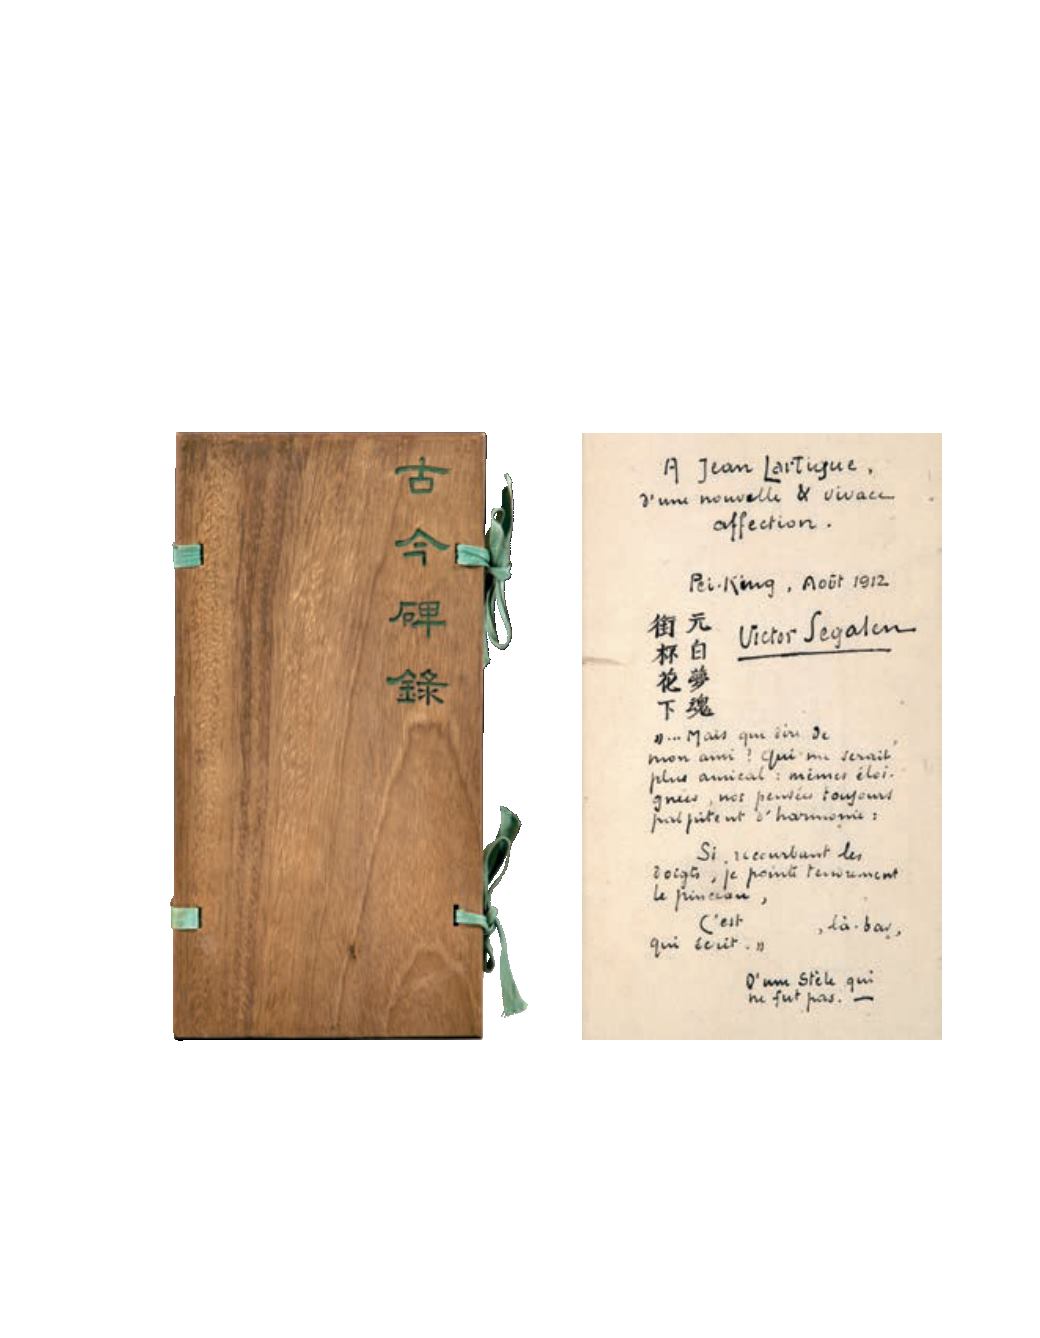 古今碑錄
A Jean Lartigue,
d'une nouvelle & vivace
affection.
Pei-King, Août 1912
Victor Segalen
元白夢魂
街杯花下
"... Mais que dire de
mon ami ? Qui me serait
plus amical : mêmes éloi-
gnées, nos pensées toujours
palpitent d'harmonie :
Si, recourbant les
doigts, je pointe tendrement
le pinceau,
C'est , là-bas,
qui écrit. "
D'une Stèle qui
ne fut pas. —